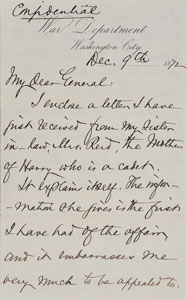 Confidential
War Department
Washington City
Dec. 9th 187
My Dear General:
I enclose a letter I have
just received from my Sister
in-law, Mrs. Reid, the Mother
of Harry who is a cadet.
It explains itself. The infor-
mation she gives is the first
I have had of the affair,
and it embarrasses me
very much to be appealed to.